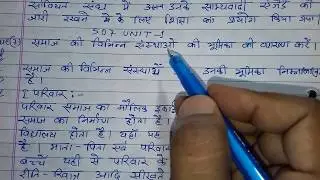 सोवियत संघ में अन्त उनके साम्यवादी
जारी रखने में के लिए शिक्षा का प्रयोग किया गया।
507 UNIT-1
समाज की विभिन्न संस्थाओं की भूमिका की व्याख्या करें।
समाज की विभिन्न संस्थायें उनकी भूमिका
है।
परिवार :-
परिवार समाज का मौलिक इकाई
समाज का निर्माण होता है
विद्यालय होता है। यहाँ पर
है। माता-पिता एवं परिवार
बच्चें यहीं से परिवार के
रीति-रिवाज आदि सीखते